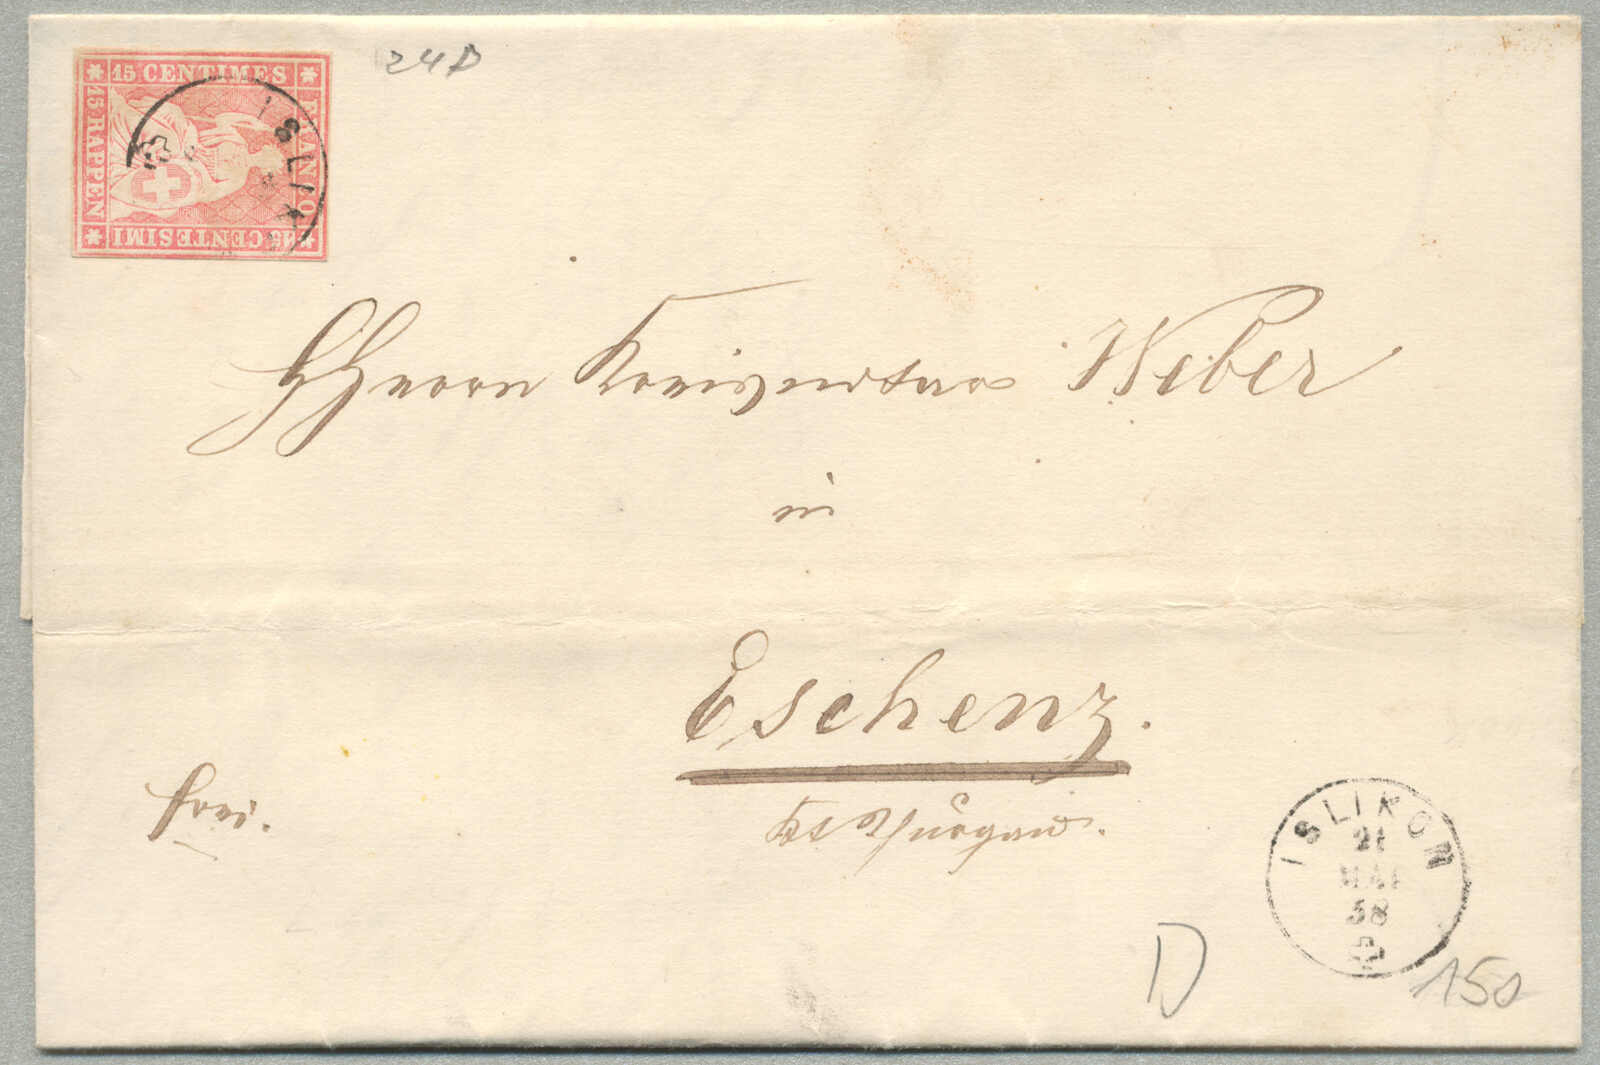 24D
15 CENTIMES
FRANCO
15 CENTESIMI
15 RAPPEN
ISLIK
Herrn Weber
in
Eschenz.
frei.
Kt Thurgau.
ISLIKON
21
MAI
58
D
150